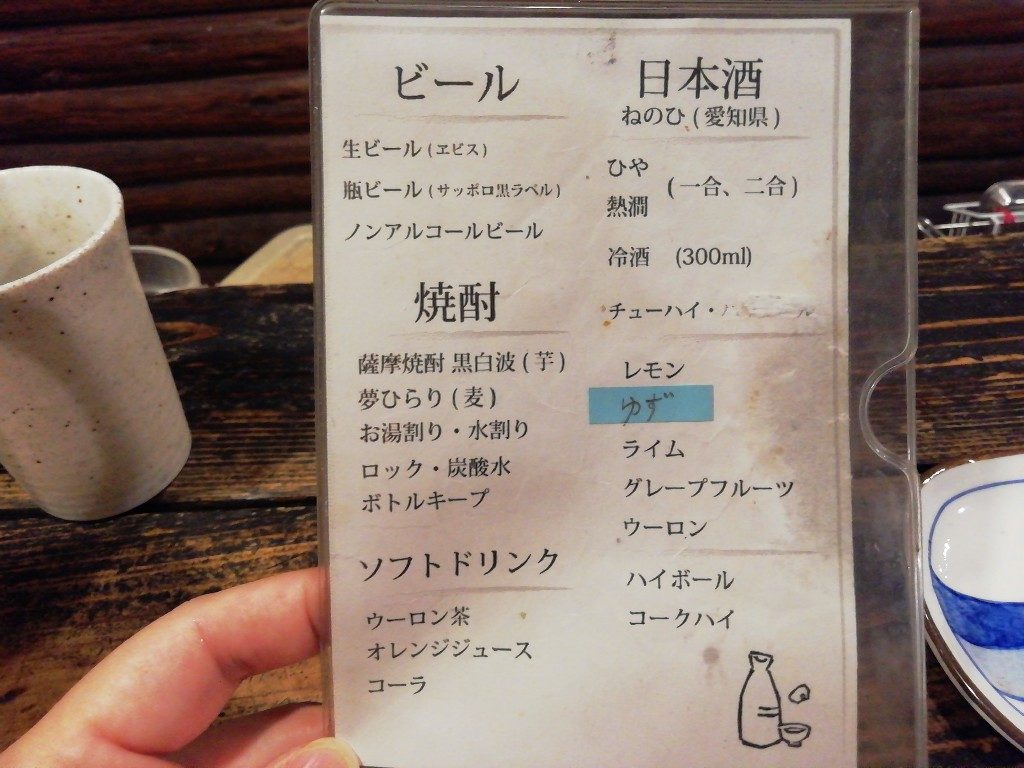 ビール
生ビール(ヱビス)
瓶ビール(サッポロ黒ラベル)
ノンアルコールビール
焼酎
薩摩焼酎 黒白波(芋)
夢ひらり(麦)
お湯割り・水割り
ロック・炭酸水
ボトルキープ
ソフトドリンク
ウーロン茶
オレンジジュース
コーラ
日本酒
ねのひ(愛知県)
ひや
熱澗
(一合、二合)
冷酒 (300ml)
チューハイ・
レモン
ゆず
ライム
グレープフルーツ
ウーロン
ハイボール
コークハイ